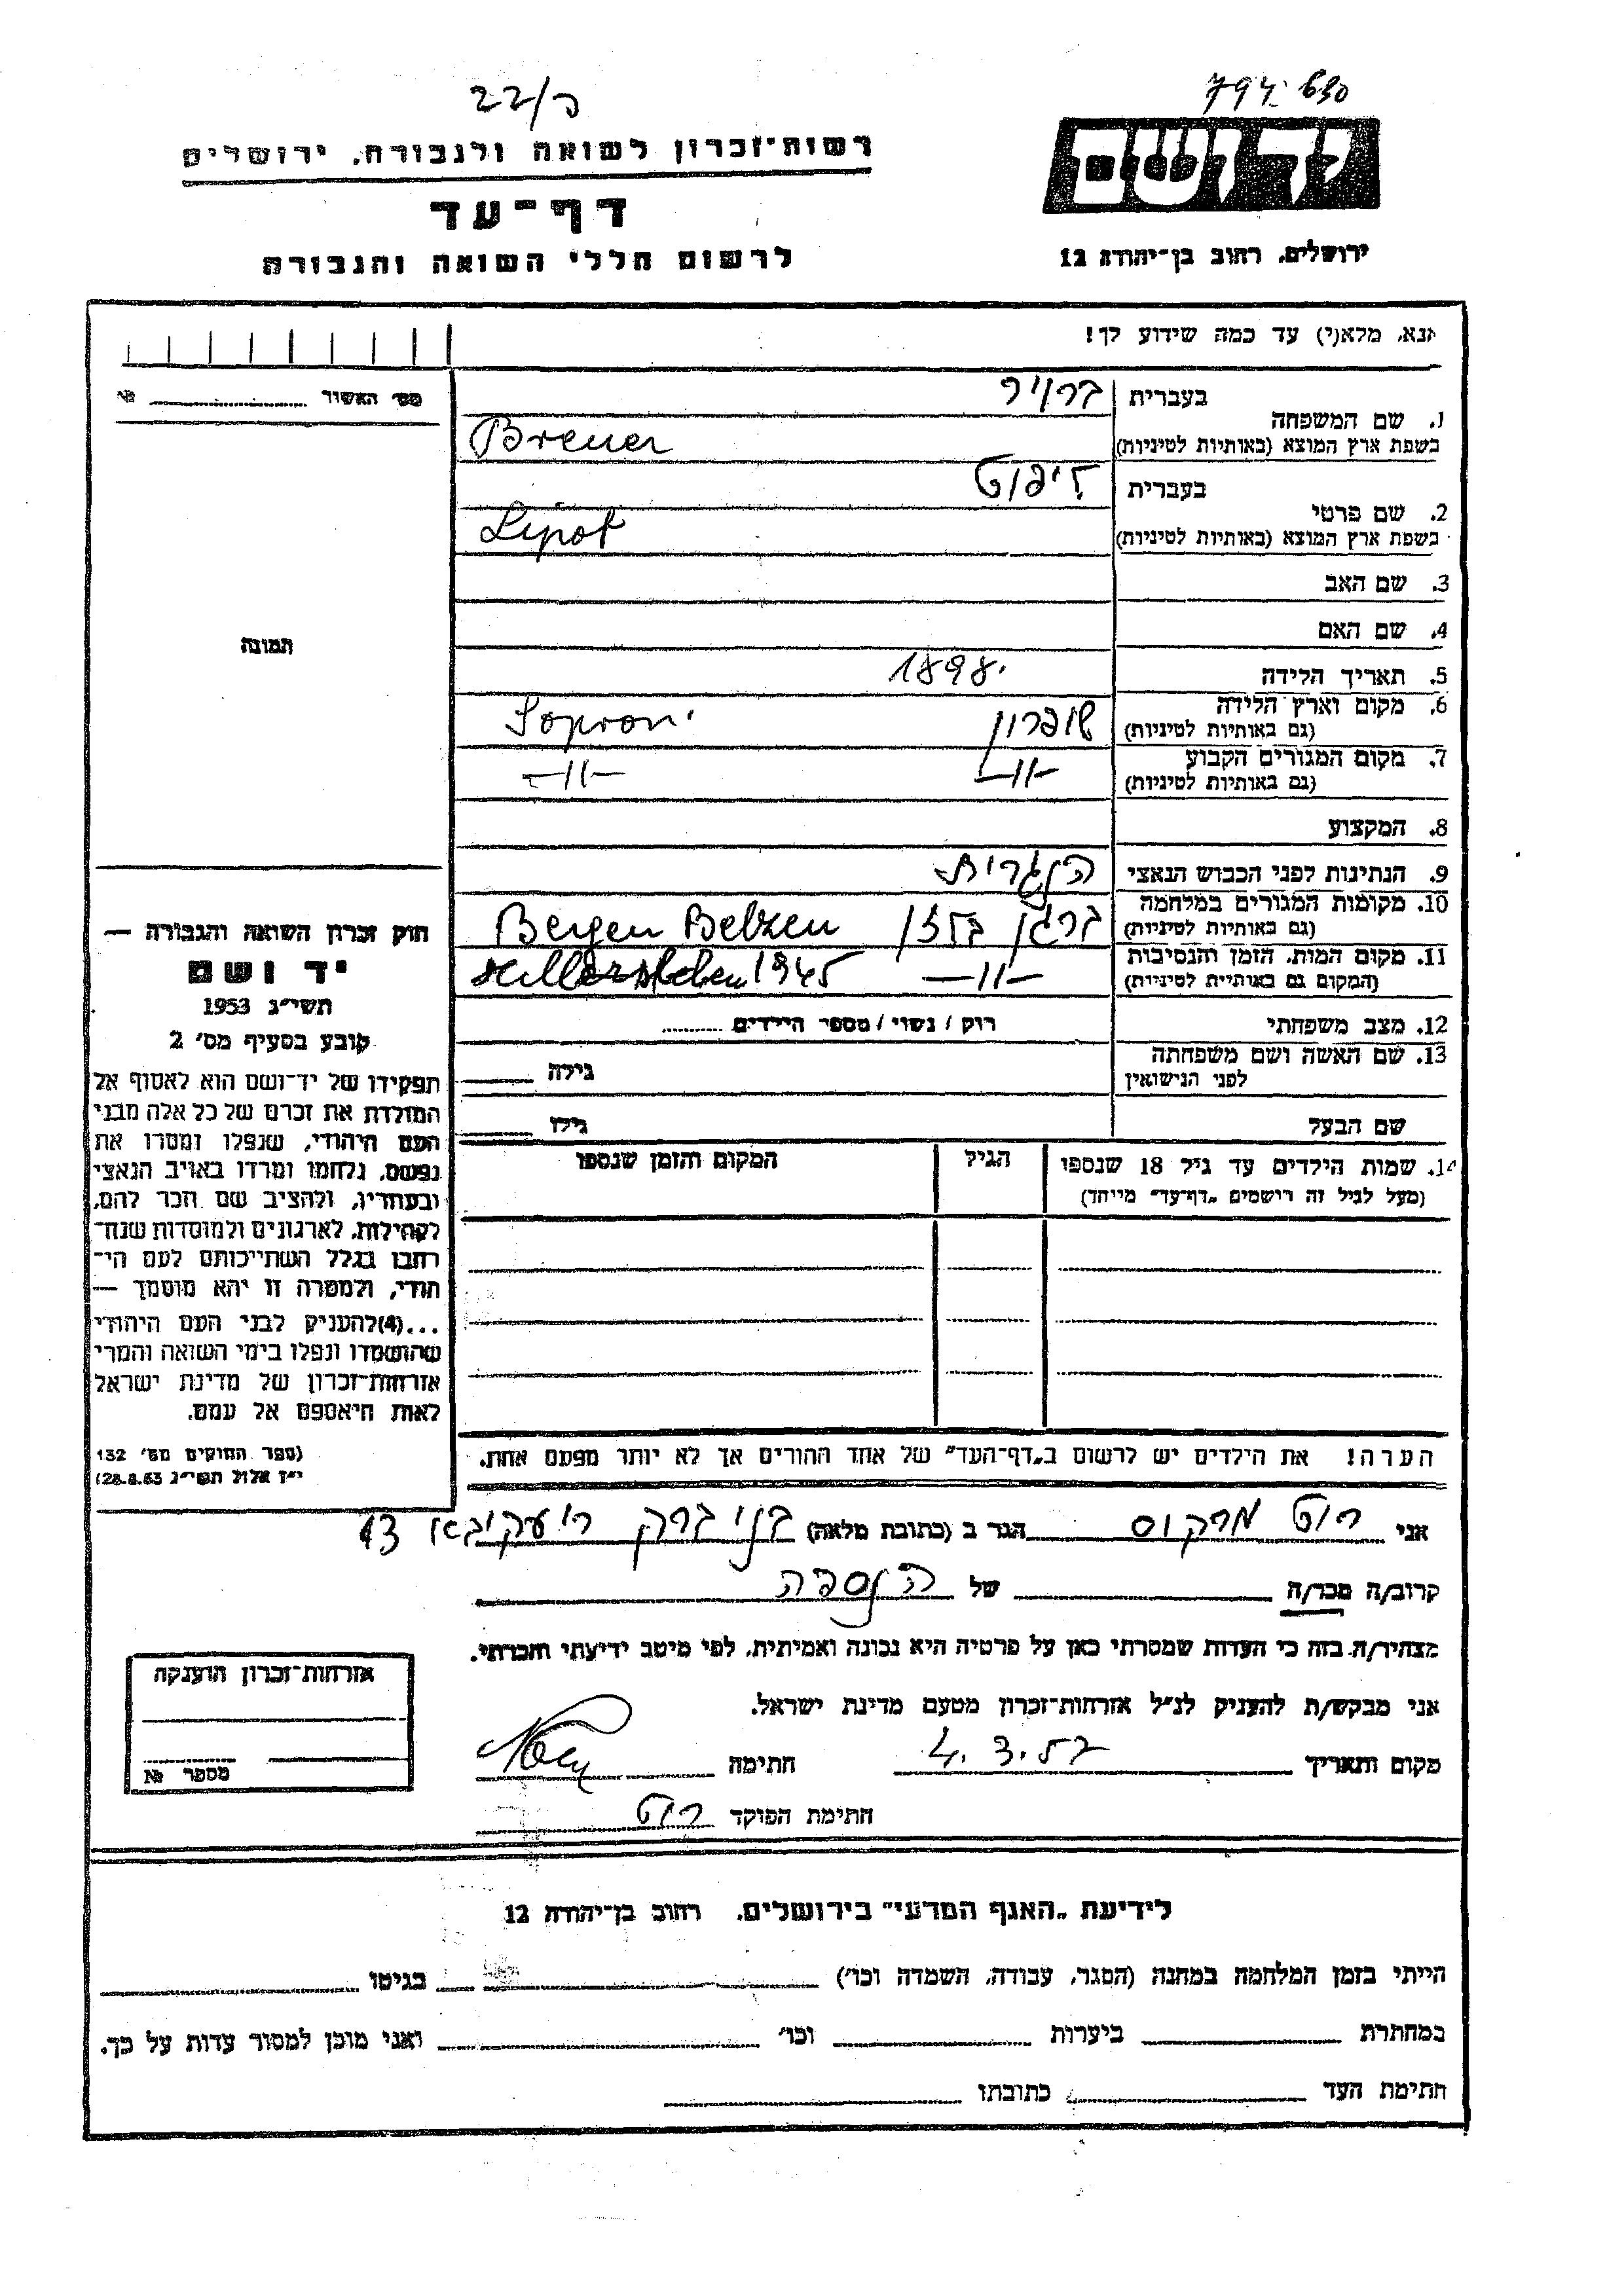 22/ה
794 630
רשות־זכרון לשואה ולגבורה, ירושלים
דף־עד
לרשום חללי השואה והגבורה
יד ושם
ירושלים, רחוב בן־יהודה 12
נא, מלא(י) עד כמה שידוע לך!
מס׳ האשור №
1. שם המשפחה
בעברית ברויר
בשפת ארץ המוצא (באותיות לטיניות) Breuer
2. שם פרטי
בעברית ליפוט
בשפת ארץ המוצא (באותיות לטיניות) Lipot
3. שם האב
4. שם האם
5. תאריך הלידה 1898.
6. מקום וארץ הלידה
(גם באותיות לטיניות) שופרון Sopron.
7. מקום המגורים הקבוע
(גם באותיות לטיניות) —״— —״—
8. המקצוע
9. הנתינות לפני הכבוש הנאצי הונגרית
10. מקומות המגורים במלחמה
(גם באותיות לטיניות) ברגן בלזן Bergen Belzen
11. מקום המות, הזמן והנסיבות
(המקום גם באותיות לטיניות) —״— Hillersleben 1945
12. מצב משפחתי רוק / נשוי / מספר הילדים
13. שם האשה ושם משפחתה
לפני הנישואין גילה
שם הבעל גילו
14. שמות הילדים עד גיל 18 שנספו הגיל המקום והזמן שנספו
(מעל לגיל זה רושמים „דף־עד״ מייחד)
הערה! את הילדים יש לרשום ב„דף־העד״ של אחד ההורים אך לא יותר מפעם אחת.
תמונה
חוק זכרון השואה והגבורה —
יד ושם
תשי״ג 1953
קובע בסעיף מס׳ 2
תפקידו של יד־ושם הוא לאסוף אל
המולדת את זכרם של כל אלה מבני
העם היהודי, שנפלו ומסרו את
נפשם, נלחמו ומרדו באויב הנאצי
ובעוזריו, ולהציב שם וזכר להם,
לקהילות, לארגונים ולמוסדות שנח־
רבו בגלל השתייכותם לעם הי־
הודי, ולמטרה זו יהא מוסמך —
...(4)להעניק לבני העם היהודי
שהושמדו ונפלו בימי השואה והמרי
אזרחות־זכרון של מדינת ישראל
לאות היאספם אל עמם.
(ספר החוקים מס׳ 132
י״ז אלול תשי״ג 28.8.53)
אני רוט מרקוס הגר ב (כתובת מלאה) בני ברק ר׳ עקיבא 43
קרוב/ה מכר/ה של הנספה
מצהיר/ה בזה כי העדות שמסרתי כאן על פרטיה היא נכונה ואמיתית, לפי מיטב ידיעתי והכרתי.
אני מבקש/ת להעניק לנ״ל אזרחות־זכרון מטעם מדינת ישראל.
מקום ותאריך 4.3.57 חתימה
חתימת הפוקד רוט
אזרחות־זכרון הוענקה
מספר №
לידיעת „האגף המדעי״ בירושלים, רחוב בן־יהודה 12
הייתי בזמן המלחמה במחנה (הסגר, עבודה, השמדה וכו׳) בגיטו
במחתרת ביערות וכו׳ ואני מוכן למסור עדות על כך.
חתימת העד כתובתו